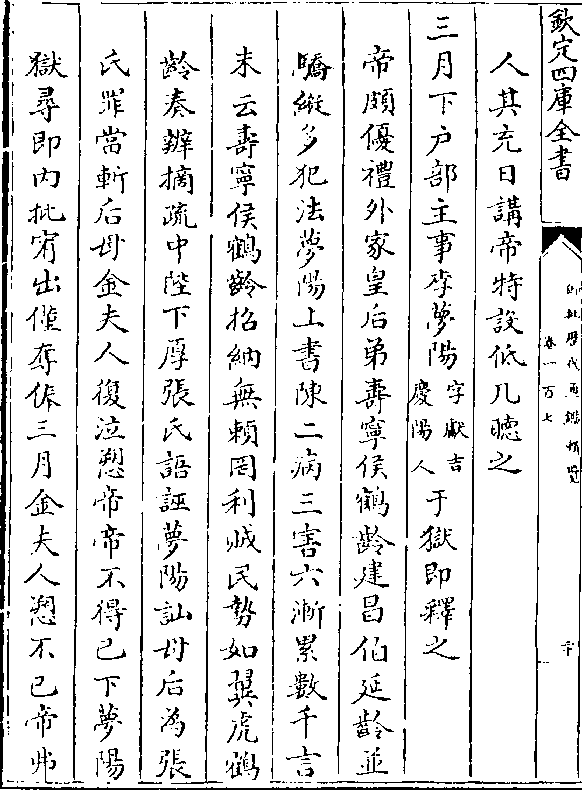 欽定四庫全書
御批歷代通鑑輯覽
卷一百七
人其充日講帝特設低几聽之
三月下户部主事李夢陽字獻吉慶陽人于獄即釋之
帝頗優禮外家皇后弟壽寧侯鶴齡建昌伯延齡並
驕縱多犯法夢陽上書陳二病三害六漸累數千言
末云壽寧侯鶴齡招納無賴罔利賊民勢如翼虎鶴
齡奏辨摘疏中陛下厚張氏語誣夢陽訕母后為張
氏罪當斬后母金夫人復泣愬帝帝不得已下夢陽
獄尋即内批宥出僅奪俸三月金夫人愬不已帝弗